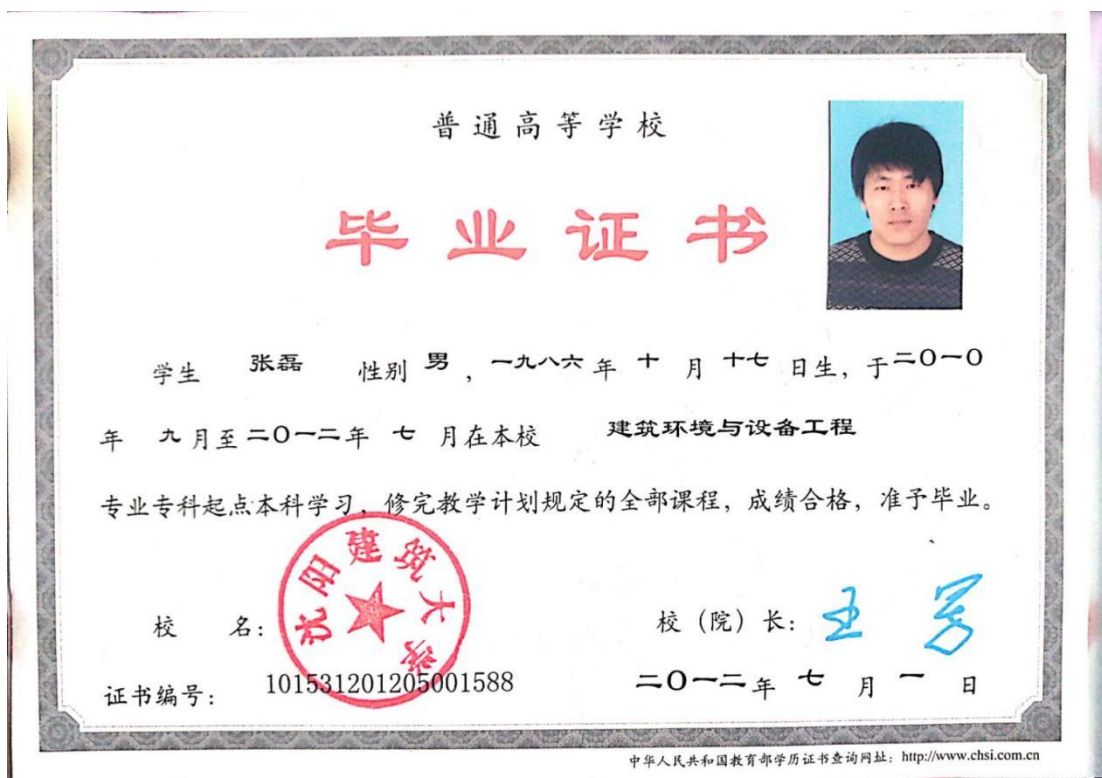 普通高等学校
毕业证书
学生 张磊 性别 男 ，一九八六 年 十 月 十七 日生，于二〇一〇
年 九 月至 二〇一二 年 七 月在本校 建筑环境与设备工程
专业专科起点本科学习、修完教学计划规定的全部课程，成绩合格，准予毕业。
沈阳建筑大学
校 名：
校（院）长：
证书编号： 101531201205001588
二〇一二 年 七 月 一 日
中华人民共和国教育部学历证书查询网址：http://www.chsi.com.cn